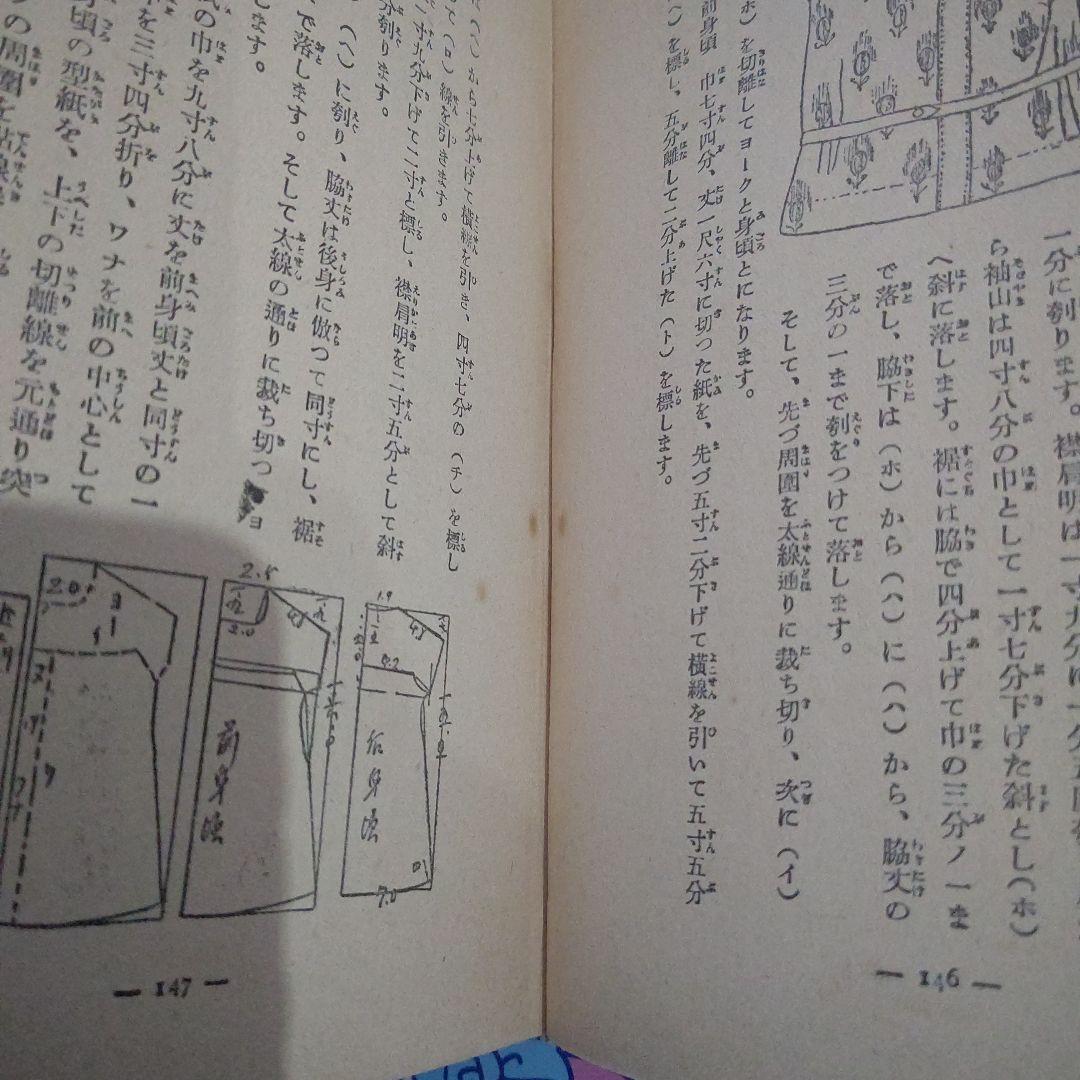 一分に刳ります。襟肩明は一寸九分に一分五厘
ら袖山は四寸八分の巾として一寸七分下げた斜とし(ホ)
へ斜に落します。裾には脇で四分上げて巾の三分ノ一ま
で落し、脇下は(ホ)から(ハ)に(ハ)から、脇丈の
三分の一まで刳をつけて落します。
そして、先づ周圍を太線通りに裁ち切り、次に(イ)
(ホ)を切離してヨークと身頃とになります。
前身頃 巾七寸四分、丈一尺六寸に切つた紙を、先づ五寸二分下げて橫線を引いて五寸五分
を標し、五分離して二分上げた(ト)を標します。
— 146 —
から七分上げて橫線を引き、四寸七分の(チ)を標し
て(ロ)線を引きます。
寸九分下げて二寸と標し、襟肩明を二寸五分として斜
分刳ります。
(ヘ)に刳り、脇丈は後身に倣つて同寸にし、裾
で落します。そして太線の通りに裁ち切つ
ヨ
ます。
紙の巾を九寸八分に丈を前身頃丈と同寸の一
を三寸四分折り、ワナを前の中心として
身頃の型紙を、上下の切離線を元通り突
の周圍を
2.0
2.5
2.0
前身頃
后身頃
7.0
— 147 —